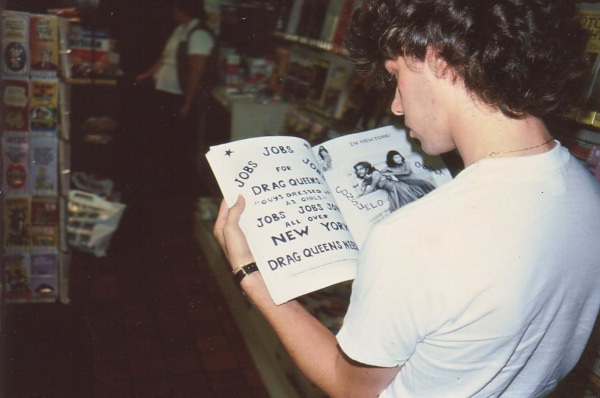 JOBS JOBS JOBS
JOBS
FOR
DRAG QUEENS
"GUYS DRESSED
AS GIRLS"
JOBS JOBS JOBS
ALL OVER
NEW YORK
DRAG QUEENS
IN NEW YORK!
CONSUELO